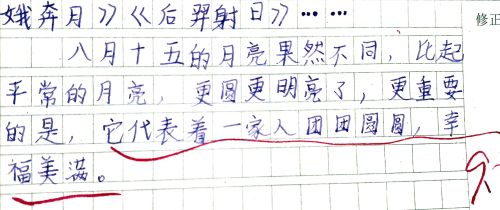 娥奔月》《后羿射日》……
修正
八月十五的月亮果然不同，比起
平常的月亮，更圆更明亮了，更重要
的是，它代表着一家人团团圆圆，幸
福美满。